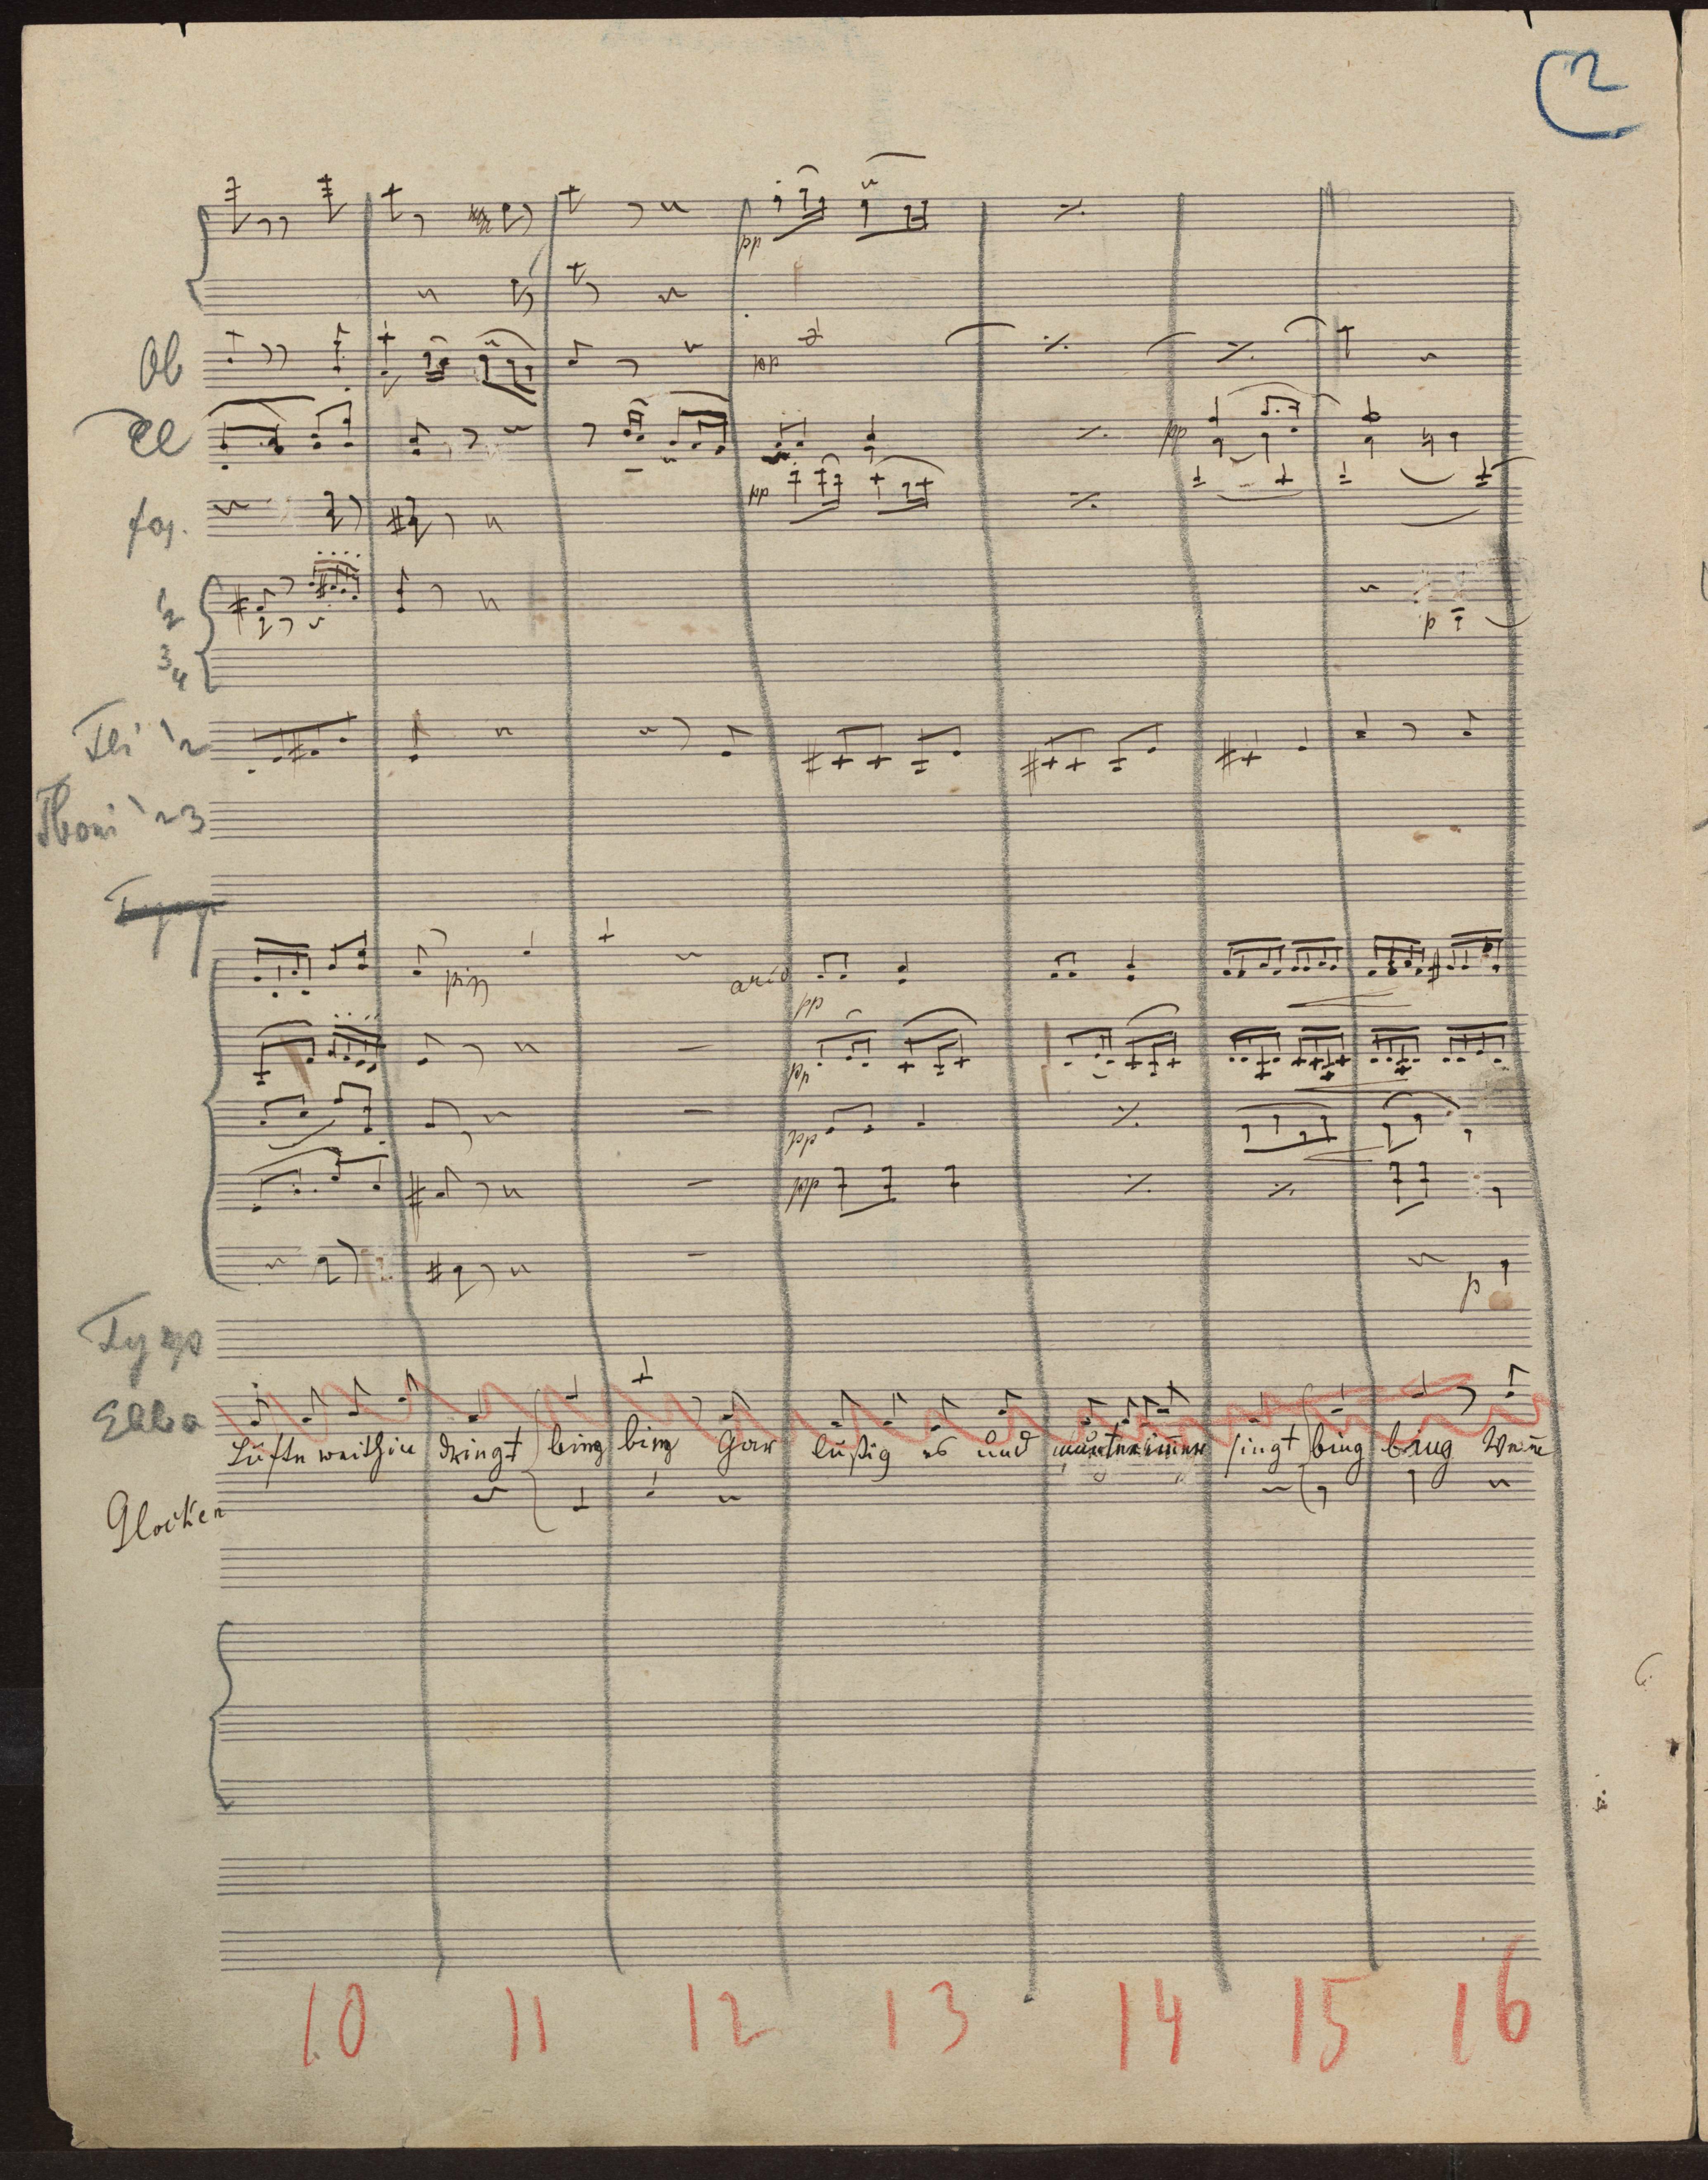 2
pp
Ob
pp
Cl
pp
fag.
pp
1/2
p
3/4
Tbi 1 2
Tboni 1 2 3
Tymp
pizz
arco
pp
pp
pp
pp
p
Tymp
Ella
Lüfte weithin dringt bing bing Gar lustig es und munter immer singt bing bing Wenn
Glocken
10 11 12 13 14 15 16